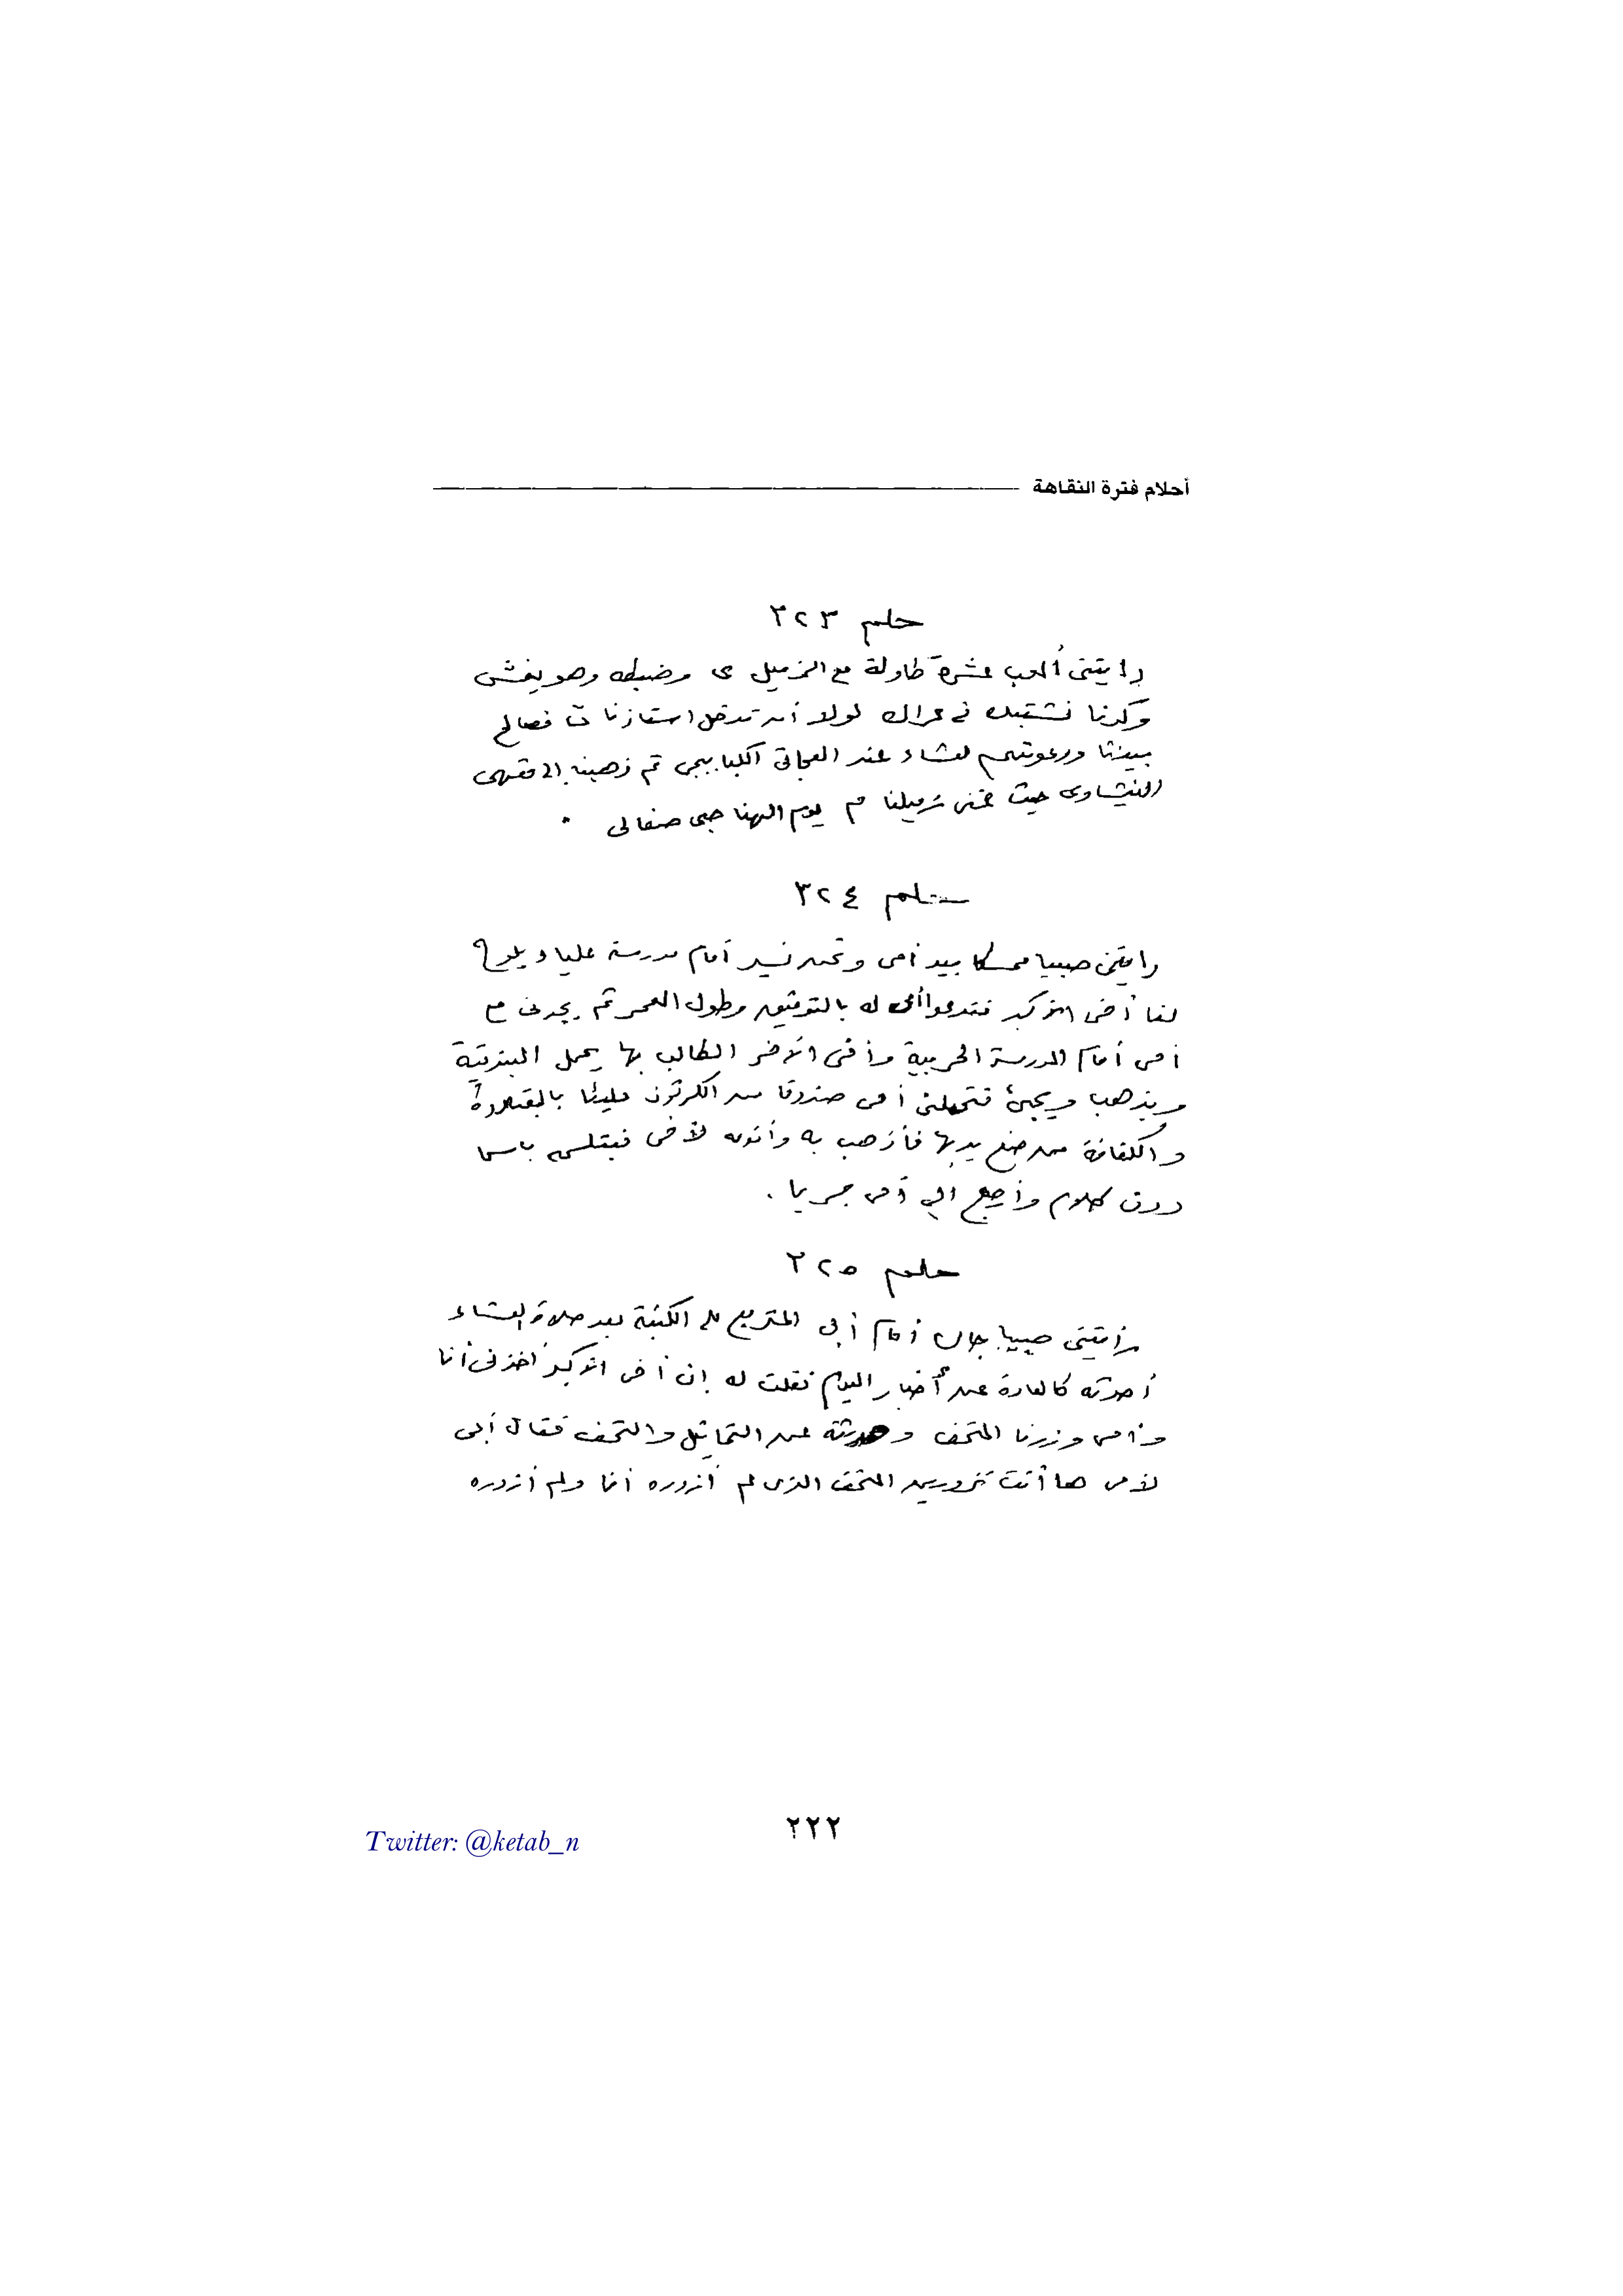 أحلام فترة النقاهة
حلم ٣٢٣
رايتنى ألعب عشرة طاولة مع الزميل ى وضبطه وهو يغش
وكدنا نشتبك فى عراك لولا أن تدخل استاذنا ت فصالح
بيننا ودعوتهم لعشاء عند العجاتى الكبابجى ثم ذهبنا الى مقهى
الفيشاوى حيث غنى زميلنا م يوم الهنا حبى صفالى .
حلم ٣٢٤
رايتنى صبيا ممسكا بيد أمى ونحن نسير أمام مدرسة عليا ويلوح
لنا أخى الأكبر فتدعوا أمى له بالتوفيق وطول العمر ثم يجرنى مع
أمى أمام المدرسة الحربية وأخى الآخر الطالب بها يحمل البندقية
ويذهب ويجئ فتحملنى أمى صندوقا من الكرتون مليئا بالبقلاوة
والكنافة من صنع يديها فأذهب به وأناوله لأخى فيتلقى باسما
دون كلام وأرجع الى أمى جريا .
حلم ٣٢٥
رأيتنى صبيا جالسا أمام أبى المتربع على الكنبة بعد صلاة العشاء
أحدثه كالعادة عن أخبار اليوم فقلت له إن أخى الأكبر أخذنى أنا
وأمى وزرنا المتحف وحدثته عن التماثيل والتحف فقال أبى
لأمى ها أنت تزورين المتحف الذى لم أزوره أنا ولم أزوره
٢٢٢
Twitter: @ketab_n